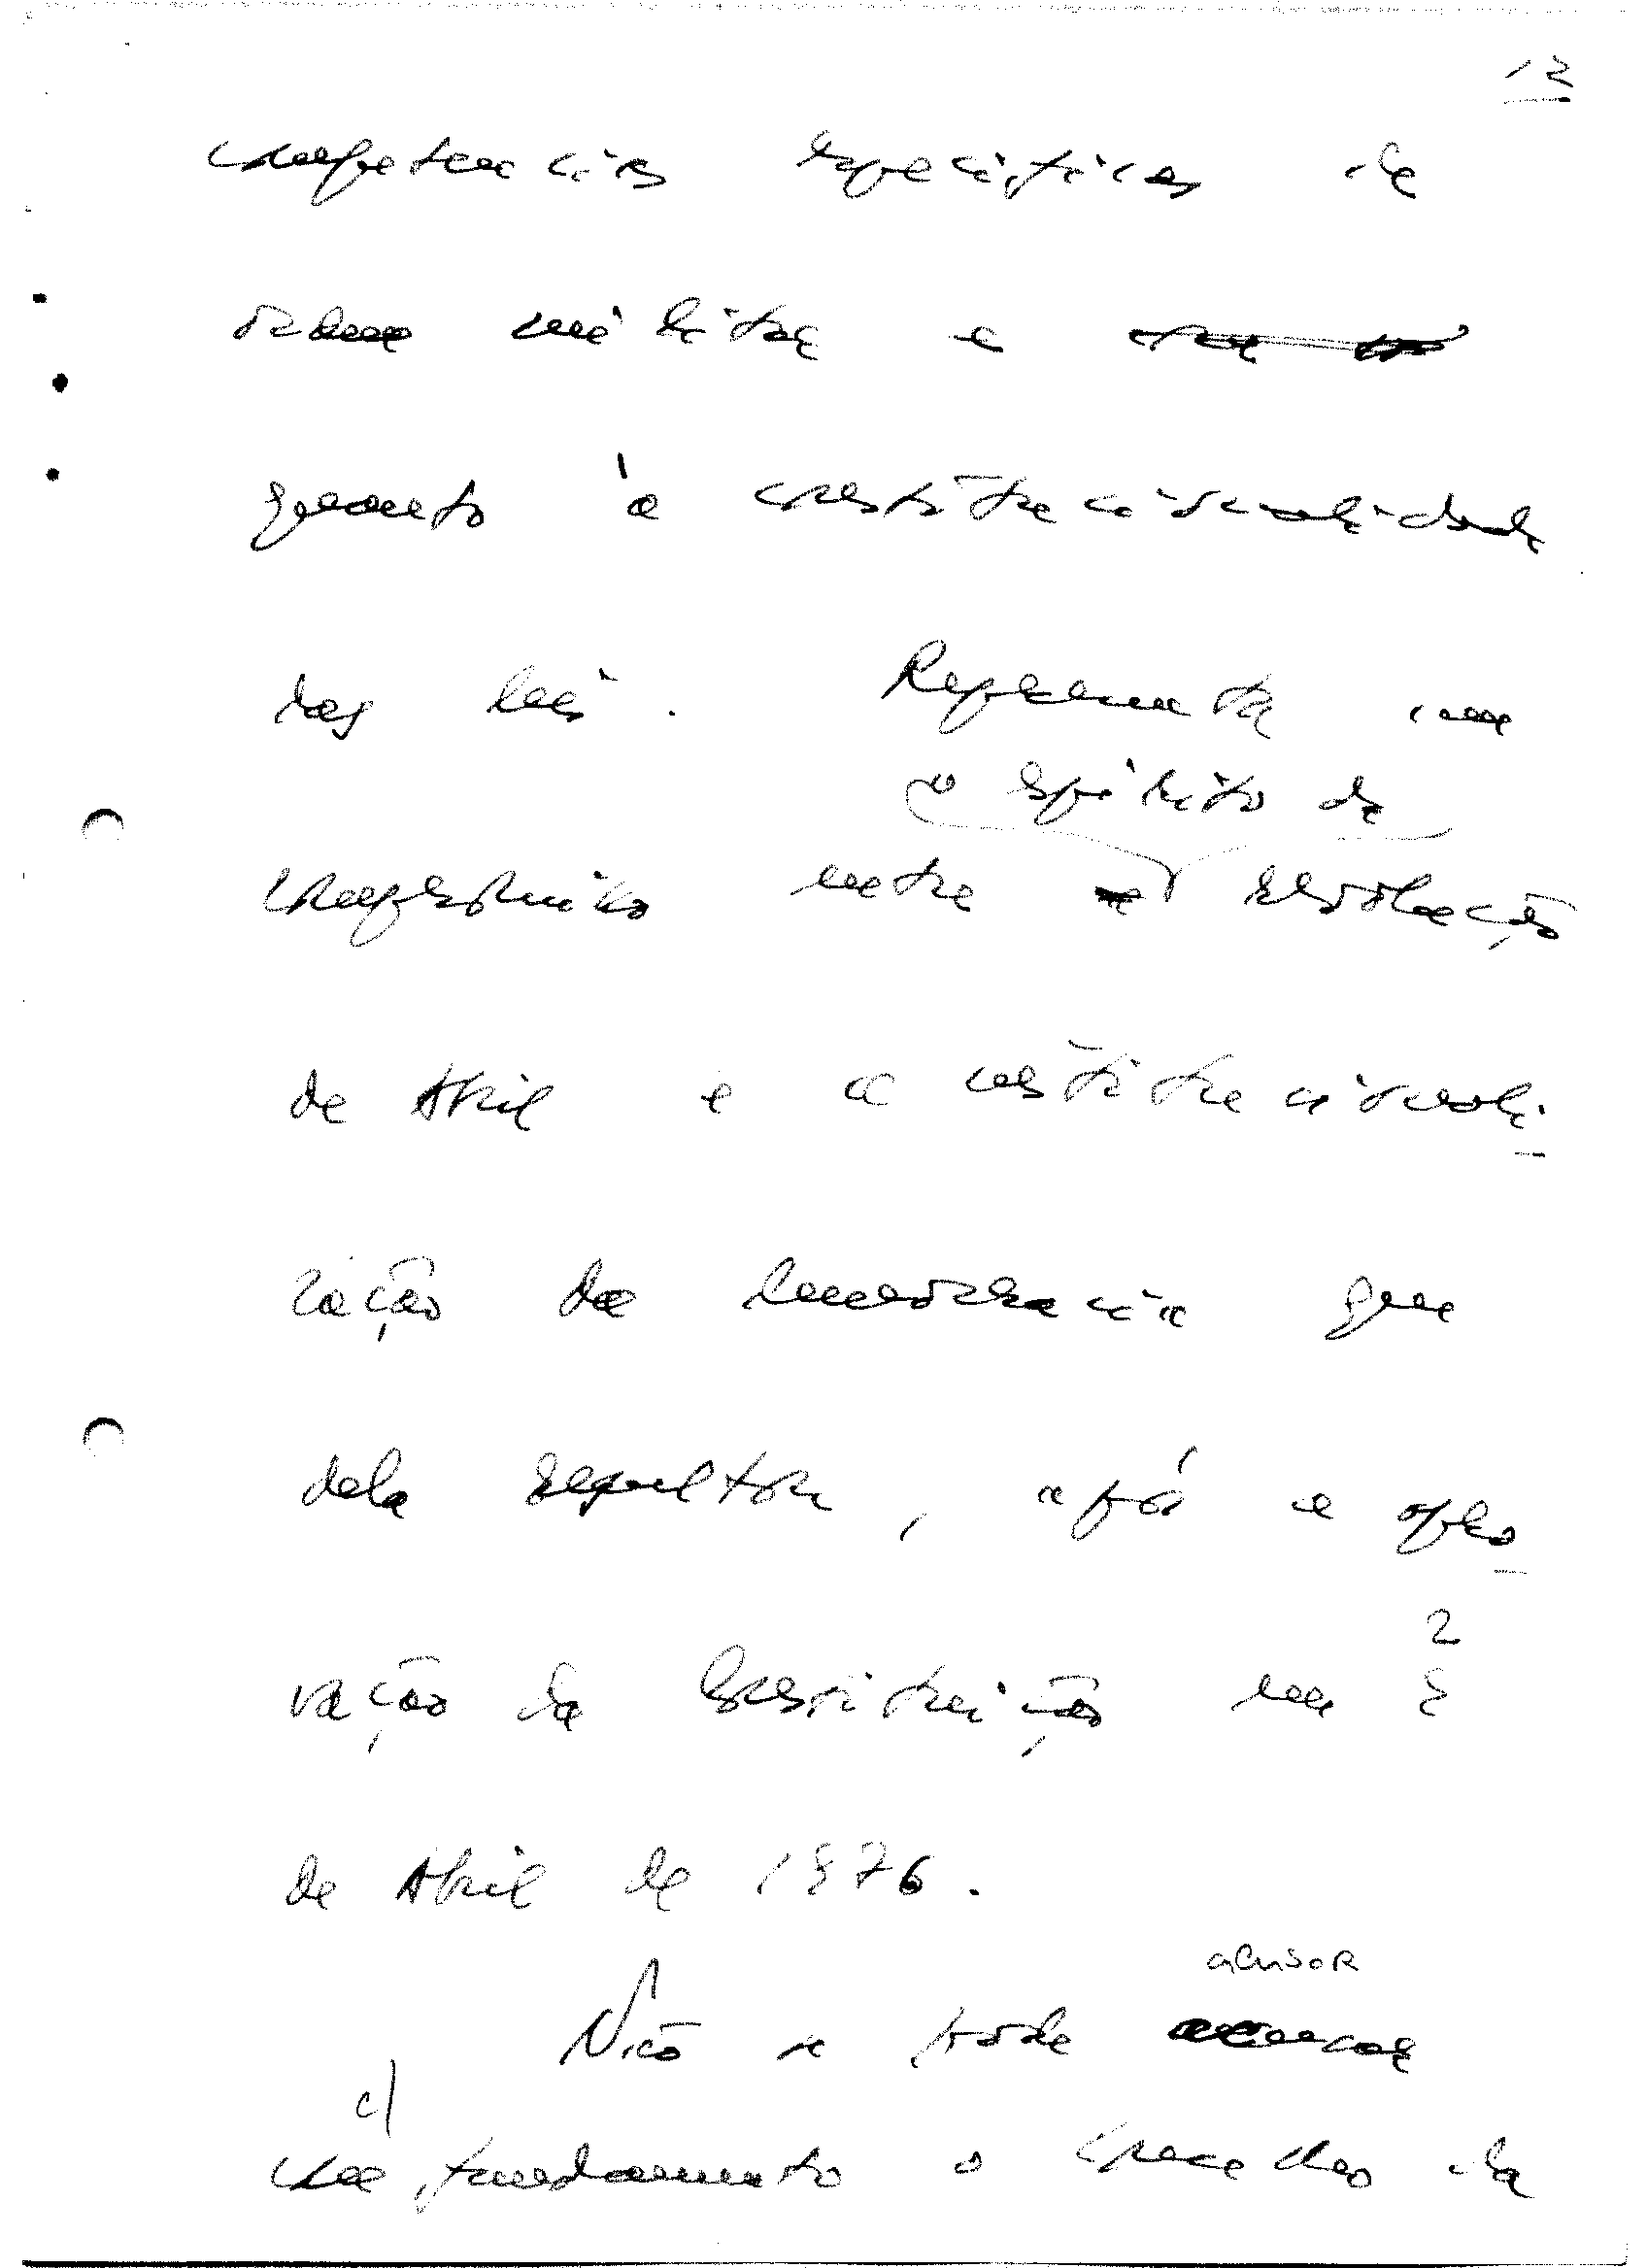 12
competências específicas de
ordem militar e
quanto à constitucionalidade
das leis. Representa um
o espírito da
compromisso entre a revolução
de Abril e a constitucionali-
zação da democracia que
dela resultou, após a apro-
vação da Constituição em 2
2
de Abril de 1976.
acusar
Não se pode acusar
c/
com fundamento o Conselho da